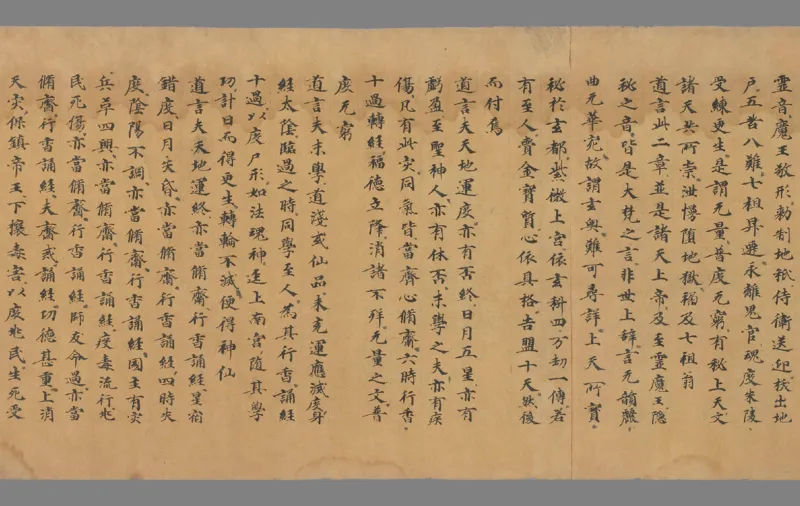 靈音魔王敬形勑制地祇侍衞送迎拔出地
戶五苦八難七祖昇遷永離鬼官魂度朱陵
受練更生是謂无量普度无窮有秘上天文
諸天共所崇泄慢墮地獄禍及七祖翁
道言此二章並是諸天上帝及至靈魔王隱
秘之音皆是大梵之言非世上辭言无韻麗
曲无華宛故謂玄奧難可尋詳上天所寶
秘於玄都紫微上宮依玄科四万劫一傳若
有至人賫金寶質心依具格告盟十天然後
而付焉
道言夫天地運度亦有否終日月五星亦有
虧盈至聖神人亦有休否末學之夫亦有疾
傷凡有此灾同氣皆當齊心脩齋六時行香
十過轉經福德立降消諸不祥无量之文普
度无窮
道言夫末學道淺或仙品未充運應滅度身
經太陰臨過之時同學至人爲其行香誦經
十過以度尸形如法魂神逕上南宮隨其學
功計日而得更生轉輪不滅便得神仙
道言夫天地運終亦當脩齋行香誦經星宿
錯度日月失昏亦當脩齋行香誦經四時失
度陰陽不調亦當脩齋行香誦經國主有灾
兵革四興亦當脩齋行香誦經疫毒流行兆
民死傷亦當脩齋行香誦經師友命過亦當
脩齋行香誦經夫齋戒誦經功德甚重上消
天灾保鎮帝王下攘毒害以度兆民生死受